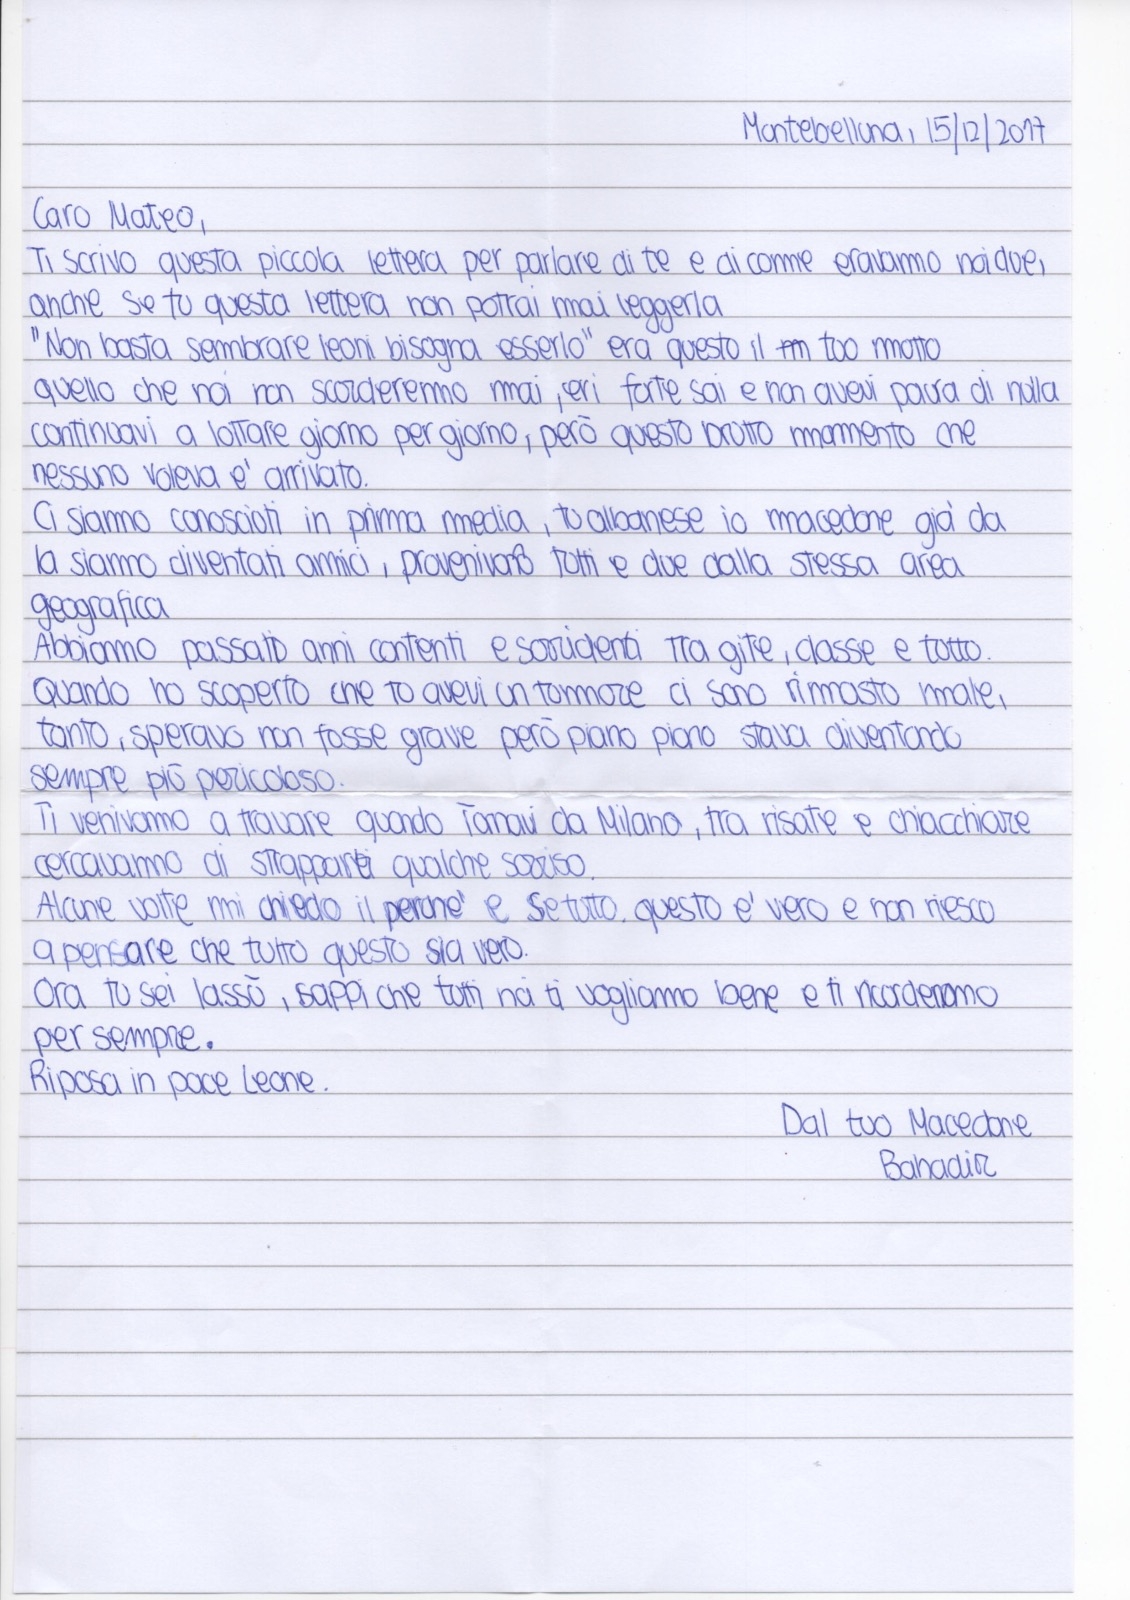 Montebelluna, 15/12/2017
Caro Mateo,
Ti scrivo questa piccola lettera per parlare di te e di come eravamo noi due,
anche se tu questa lettera non potrai mai leggerla
"Non basta sembrare leoni bisogna esserlo" era questo il tuo motto
quello che noi non scorderemo mai, eri forte sai e non avevi paura di nulla
continuavi a lottare giorno per giorno, però questo brutto momento che
nessuno voleva e' arrivato.
Ci siamo conosciuti in prima media, tu albanese io macedone già da
la siamo diventati amici, provenivamo tutti e due dalla stessa area
geografica
Abbiamo passato anni contenti e sorridenti tra gite, classe e tutto.
Quando ho scoperto che tu avevi un tumore ci sono rimasto male,
tanto, speravo non fosse grave però piano piano stava diventando
sempre più pericoloso.
Ti venivamo a trovare quando tornavi da Milano, tra risate e chiacchiare
cercavamo di strapparti qualche sorriso.
Alcune volte mi chiedo il perche' e se tutto questo e' vero e non riesco
a pensare che tutto questo sia vero.
Ora tu sei lassù, sappi che tutti noi ti vogliamo bene e ti ricorderemo
per sempre.
Riposa in pace Leone.
Dal tuo Macedone
Bahadir